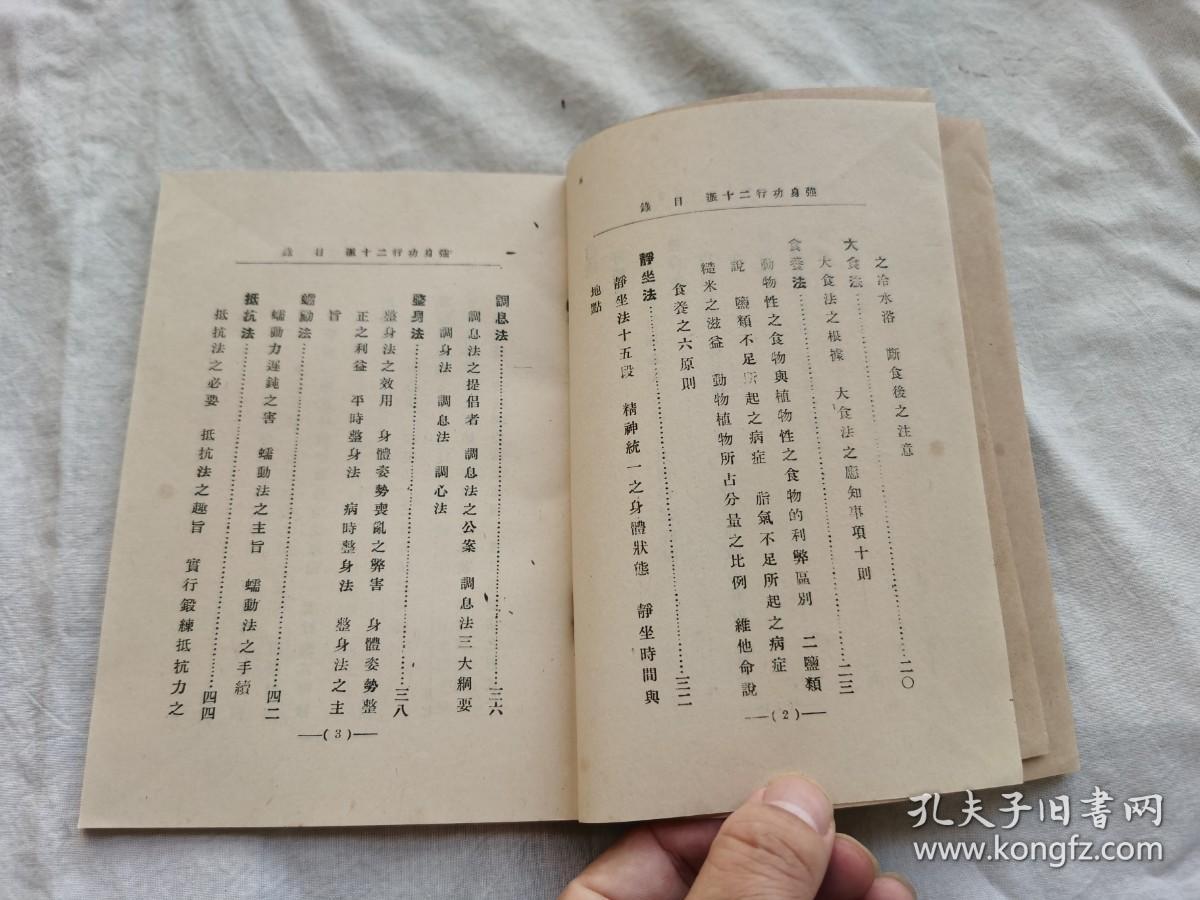 强身功行二十派 目錄
之冷水浴 斷食後之注意
大食法……二〇
大食法之根據 大食法之應知事項十則
食養法……二三
動物性之食物與植物性之食物的利弊區別 二鹽類
說 鹽類不足所起之病症 脂氣不足所起之病症
糙米之滋益 動物植物所占分量之比例 維他命說
食養之六原則
靜坐法……三二
靜坐法十五段 精神統一之身體狀態 靜坐時間與
地點
—(2)—
强身功行二十派 目錄
調息法……三六
調息法之提倡者 調息法之公案 調息法三大綱要
調身法 調息法 調心法
整身法……三八
整身法之效用 身體姿勢喪亂之弊害 身體姿勢整
正之利益 平時整身法 病時整身法 整身法之主
旨
蠕動法……四二
蠕動力遲鈍之害 蠕動法之主旨 蠕動法之手續
抵抗法……四四
抵抗法之必要 抵抗法之趣旨 實行鍛練抵抗力之
—(3)—
孔夫子旧书网
www.kongfz.com